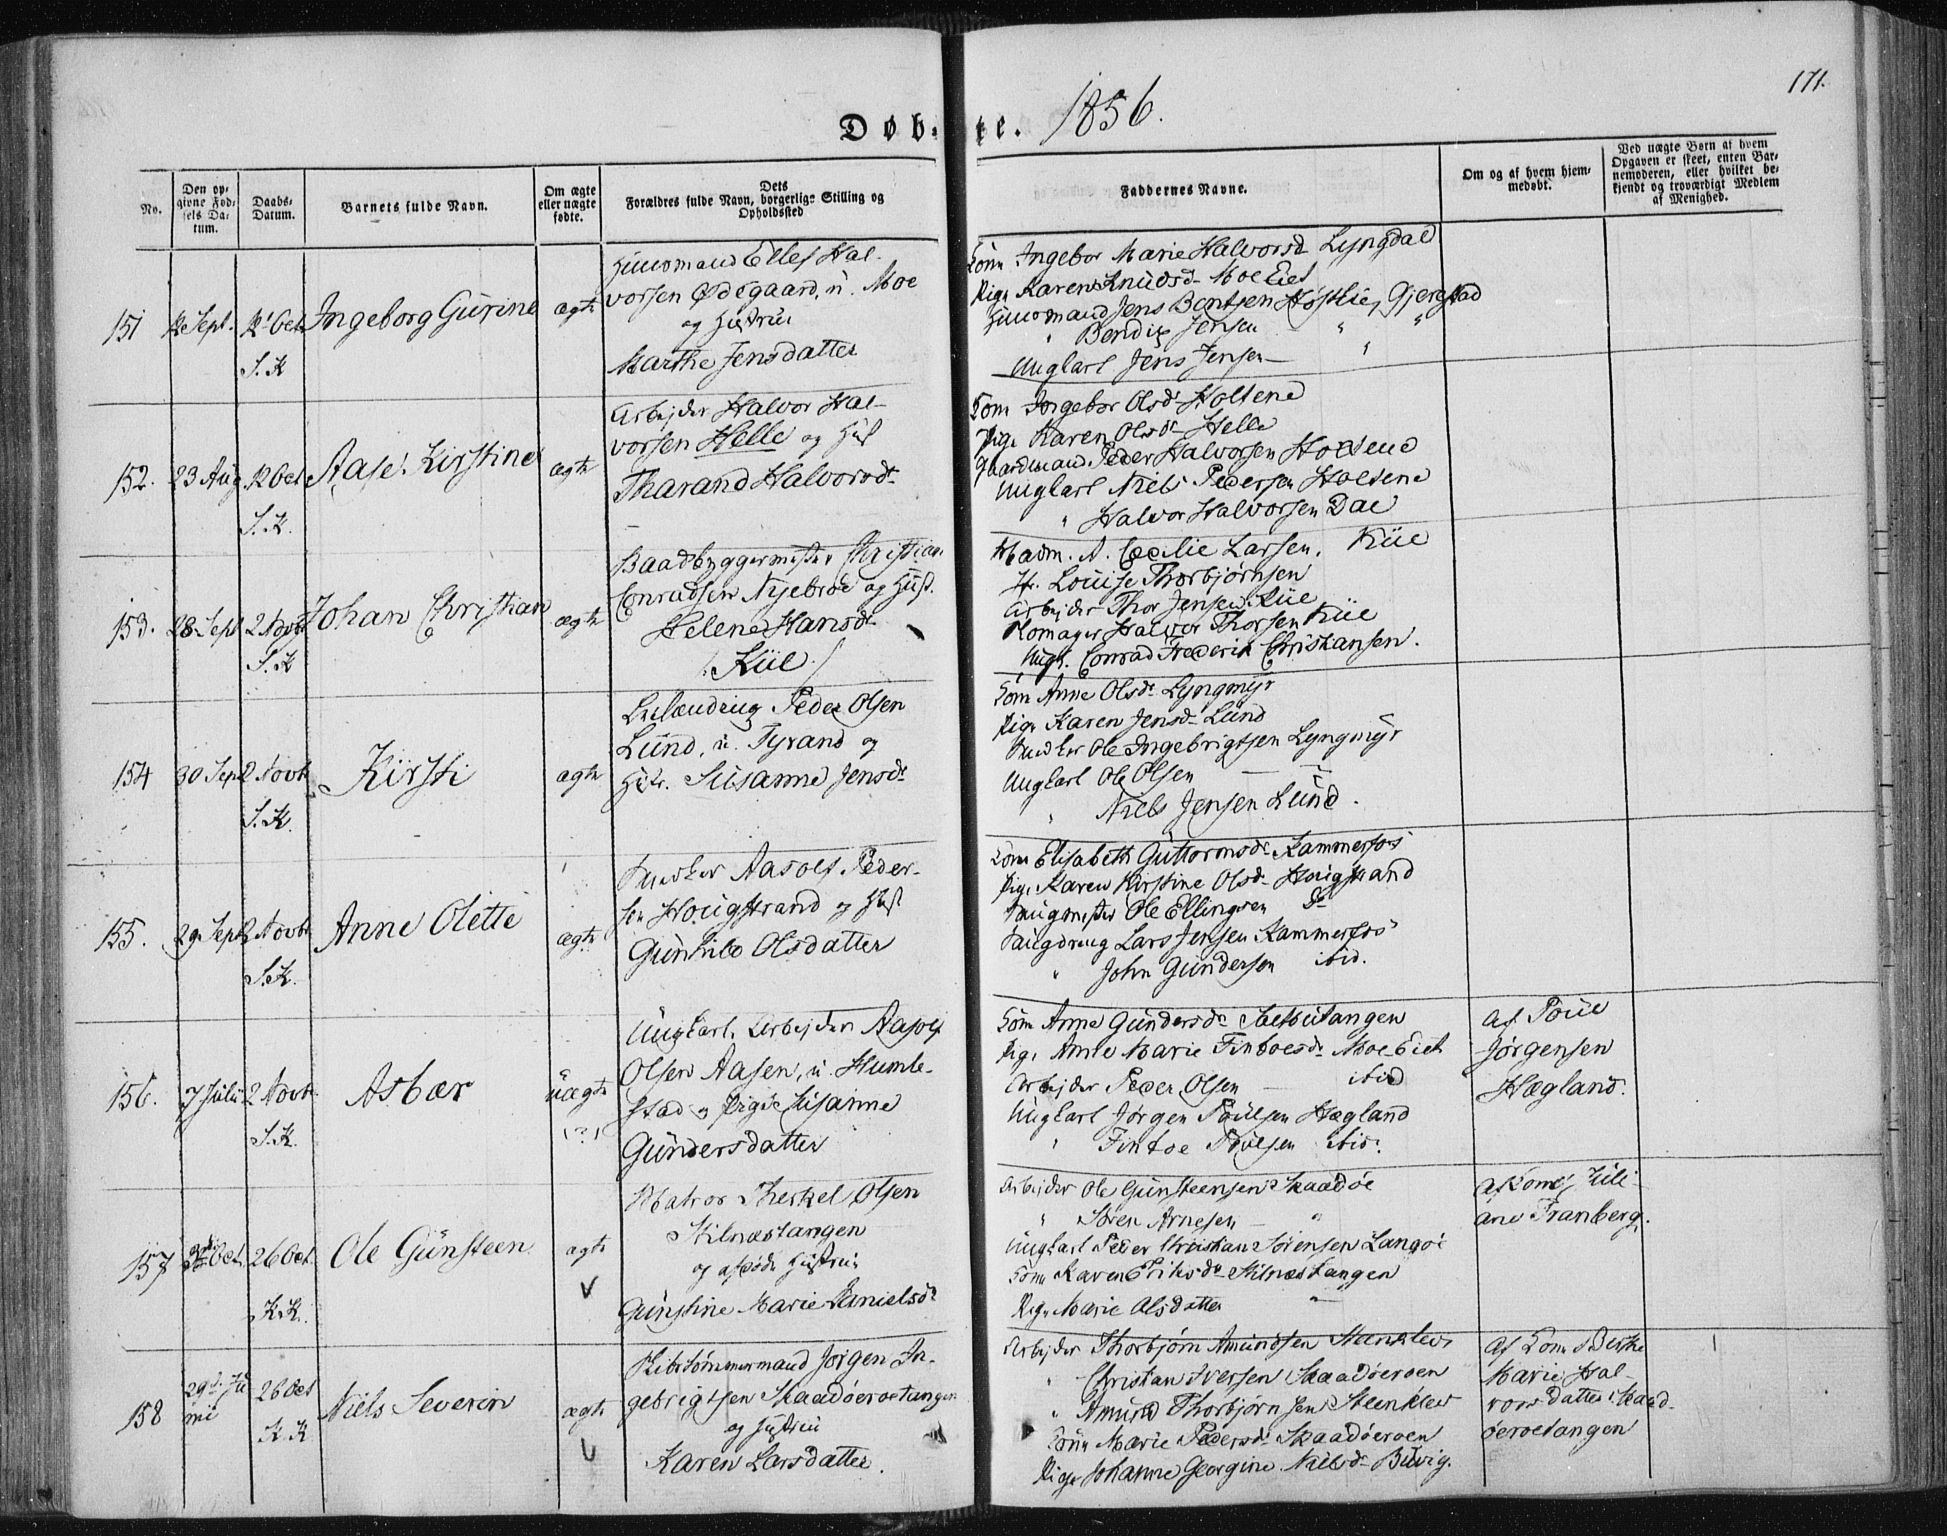 171.
Døb- te. 1856.
No.
Den op-
givne Fød-
sels Da-
tum.
Daabs-
Datum.
Barnets fulde Navn.
Om ægte
eller uægte
fødte.
Dets
Forældres fulde Navn, borgerlige Stilling og
Opholdssted
Faddernes Navne.
Om og af hvem hjem-
medøbt.
Ved uægte Børn af hvem
Opgaven er skeet, enten Bar-
nemoderen, eller hvilket be-
kjendt og troværdigt Medlem
af Menighed.
151 12 Sept. 12 Oct Ingeborg Gurine ægte
S.K
Elles Hal-
vorsen Ødegaard, u. Moe
og Hustru
Marthe Jensdatter
Kone Ingebor Marie Halvorsd. Lyngdal
Pige Karen Knudsd. Moe Eiet
Jens Bentsen Høstlie, Gjerestad
" Bendix Jensen " "
Ungkarl Jens Jensen "
152. 23 Aug 12 Oct Aase Kirstine ægte
S.K.
Arbejder Halvor Hal-
vorsen Helle og Hust
Tharand Halvorsdt.
Kone Ingebor Olsdr Holtene
Pige Karen Olsdr Helle
Gaardmand Peder Halvorsen Holtene
Ungkarl Niels Pedersen Holtene
" Halvor Halvorsen Dal
153. 28 Sept 2 Novbr Johan Christian ægte
S.K
Baadbyggermester Christian
Conradsen Nyebroe og Hust.
Helene Hansdr
/: Kiil :/
Madm. A. Cecilie Larsen. Kiil
Fr. Louise Thorbjørnsen
Arbejder Thor Jensen Kiil
Skomager Halvor Thorsen Kiil
Ungk. Conrad Frederik Christiansen.
154 30 Sept 2 Novbr Kirsti ægte
S.K.
Peder Olsen
Lund, u. Tyrand og
Hstr. Susanne Jensdr
Kone Anne Olsdr Lyngmyr
Pige Karen Jensdr Lund
Snedker Ole Ingebrigtsen Lyngmyr
Ungkarl Ole Olsen — "
" Niels Jensen Lund.
155. 29 Sept 2 Novbr Anne Olette ægte
S.K.
Snedker Aasolf Peder-
sen Hougstrand og Hust
Gunhild Olsdatter
Kone Elisabeth Guttormsdr Kammerfos
Pige Karen Kirstine Olsdr Hougstrand
Ole Ellingsen Do
Lars Jensen Kammerfos
" John Gundersen ibid.
156. 7 Julii 2 Novbr Asbær uægte
S.K. (?)
Ungkarl. Arbejder Aasolf
Olsen Aasen, u. Humle-
stad og Pige Susanne
Gundersdatter
Kone Anne Gundersdr Saltbutangen
Pige Anne Marie Finboesdr Moe Eiet
Arbejder Peder Olsen — ibid
Ungkarl Jørgen Poulsen Hægland
" Finboe Poulsen ibid.
Af Poul
Jørgensen
Hægland.
157 Oct. 26 Oct. Ole Gunsteen ægte
K.K. V
Matros Therkel Olsen
Stilnæstangen
og afdøde Hustru
Gunstine Marie Danielsdr
Arbejder Ole Gunsteensen Skaadøe
" Søren Arnesen — "
Ungkarl Peder Christian Sørensen Langøe
Kone Karen Eriksdr Stilnæstangen
Pige Marie Olsdatter "
Af Kone Juli-
ane Franberg.
158 29d. Ju-
nii 26 Oct Niels Severin ægte
K.K V
Skibstømmermand Jørgen In-
gebrigtsen Skaadøeroetangen
og Hustru
Karen Larsdatter.
Arbejder Thorbjørn Amundsen Stenklev
" Christian Iversen Skaadøeroen
" Amund Thorbjørnsen Steenklev
Kone Marie Pedersdr Skaadøeroen
Pige Johanne Georgine Nielsdr Buvig.
Af Kone Birthe
Marie Hal-
vorsdatter Skaad-
øeroetangen